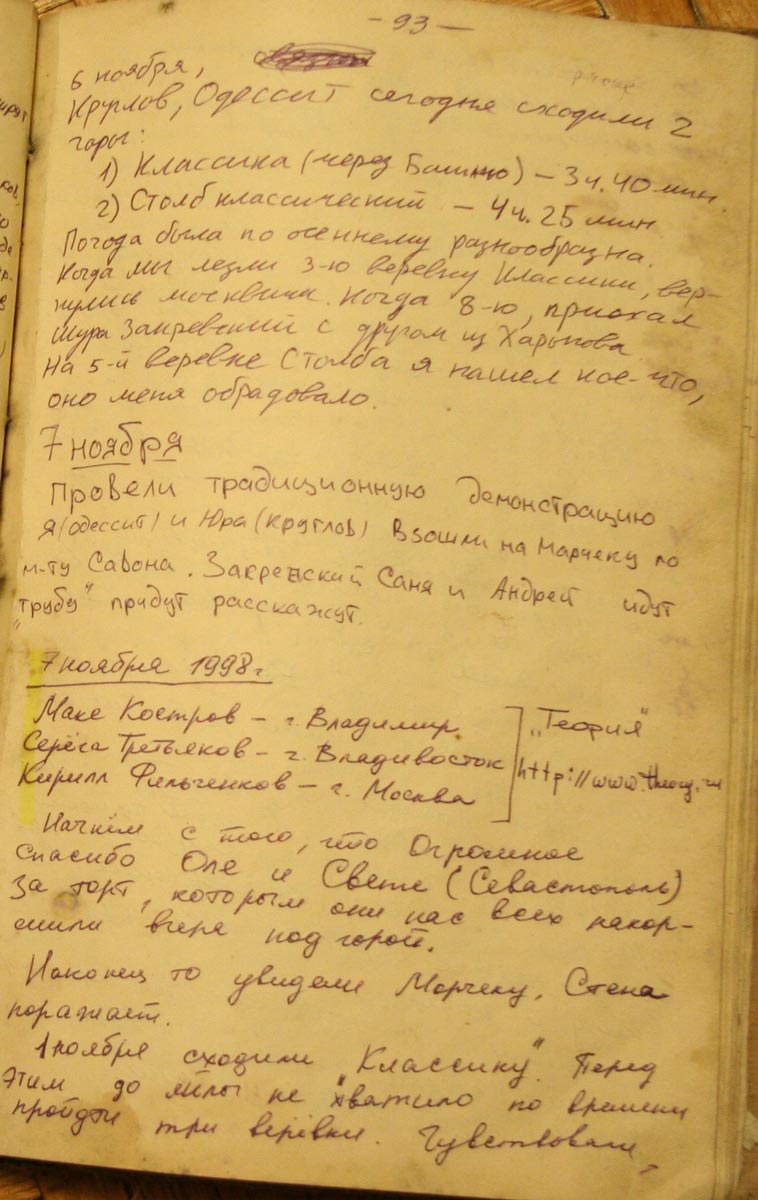 - 93 -
6 ноября,
Круглов, Одессит сегодня сходили 2
горы:
1) Классика (через Башню) - 3ч. 40 мин.
2) Столб классический - 4ч. 25 мин
Погода была по осеннему разнообразна.
Когда мы лезли 3-ю веревку Классики, вер-
нулись москвичи. Когда 8-ю, приехал
Шура Закревский с другом из Харькова
На 5-й веревке Столба я нашел кое-что,
оно меня обрадовало.
7 ноября
Провели традиционную демонстрацию
Я (одессит) и Юра (круглов) Взошли на Марчеку по
м-ту Савона. Закревский Саня и Андрей идут
"трубу" придут расскажут.
7 ноября 1998г.
Макс Костров - г. Владимир
Серёга Третьяков - г. Владивосток
Кирилл Фильченков - г. Москва
„Теория"
http://www.theory.ru
Начнём с того, что Огромное
спасибо Оле и Свете (Севастополь)
за торт, которым они нас всех накор-
мили вчера под горой.
Наконец то увидели Марчеку. Стена
поражает.
1 ноября сходили „Классику". Перед
этим до не хватило по времени
пройти три верёвки. Чувствовали,